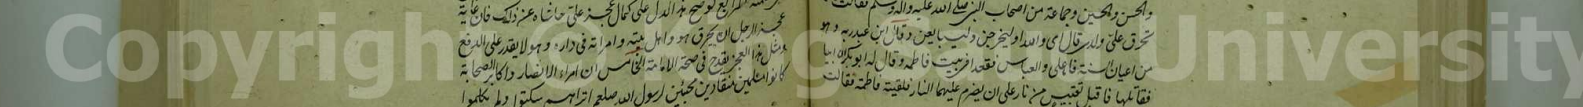 والحسن والحسين وجماعة من اصحاب النبي صلى الله عليه واله وسلم فقالت
تحرق علي ولدي قال اى والله او ليخرجن وليبايعن وقال ابن عبد ربه وهو
من اعيان السنة فاما علي والعباس فقعدا في بيت فاطمة وقال له ابو بكر ان ابيا
فقاتلهما فاقبل بقبس من نار على ان يضرم عليهما النار فلقيته فاطمة فقالت
الرابع لو صح هذا لدل على كمال عجز علي حاشاه عن ذلك فان غاية
عجز الرجل ان يحرق هو واهل بيته وامراته في داره وهو لا يقدر على الدفع
ومثل هذا العجز يقدح في صحة الامامة الخامس ان امراء الانصار واكابر الصحابة
كانوا مسلمين منقادين محبين لرسول الله صلعم اتراهم سكتوا ولم يكلموا
Copyright © University